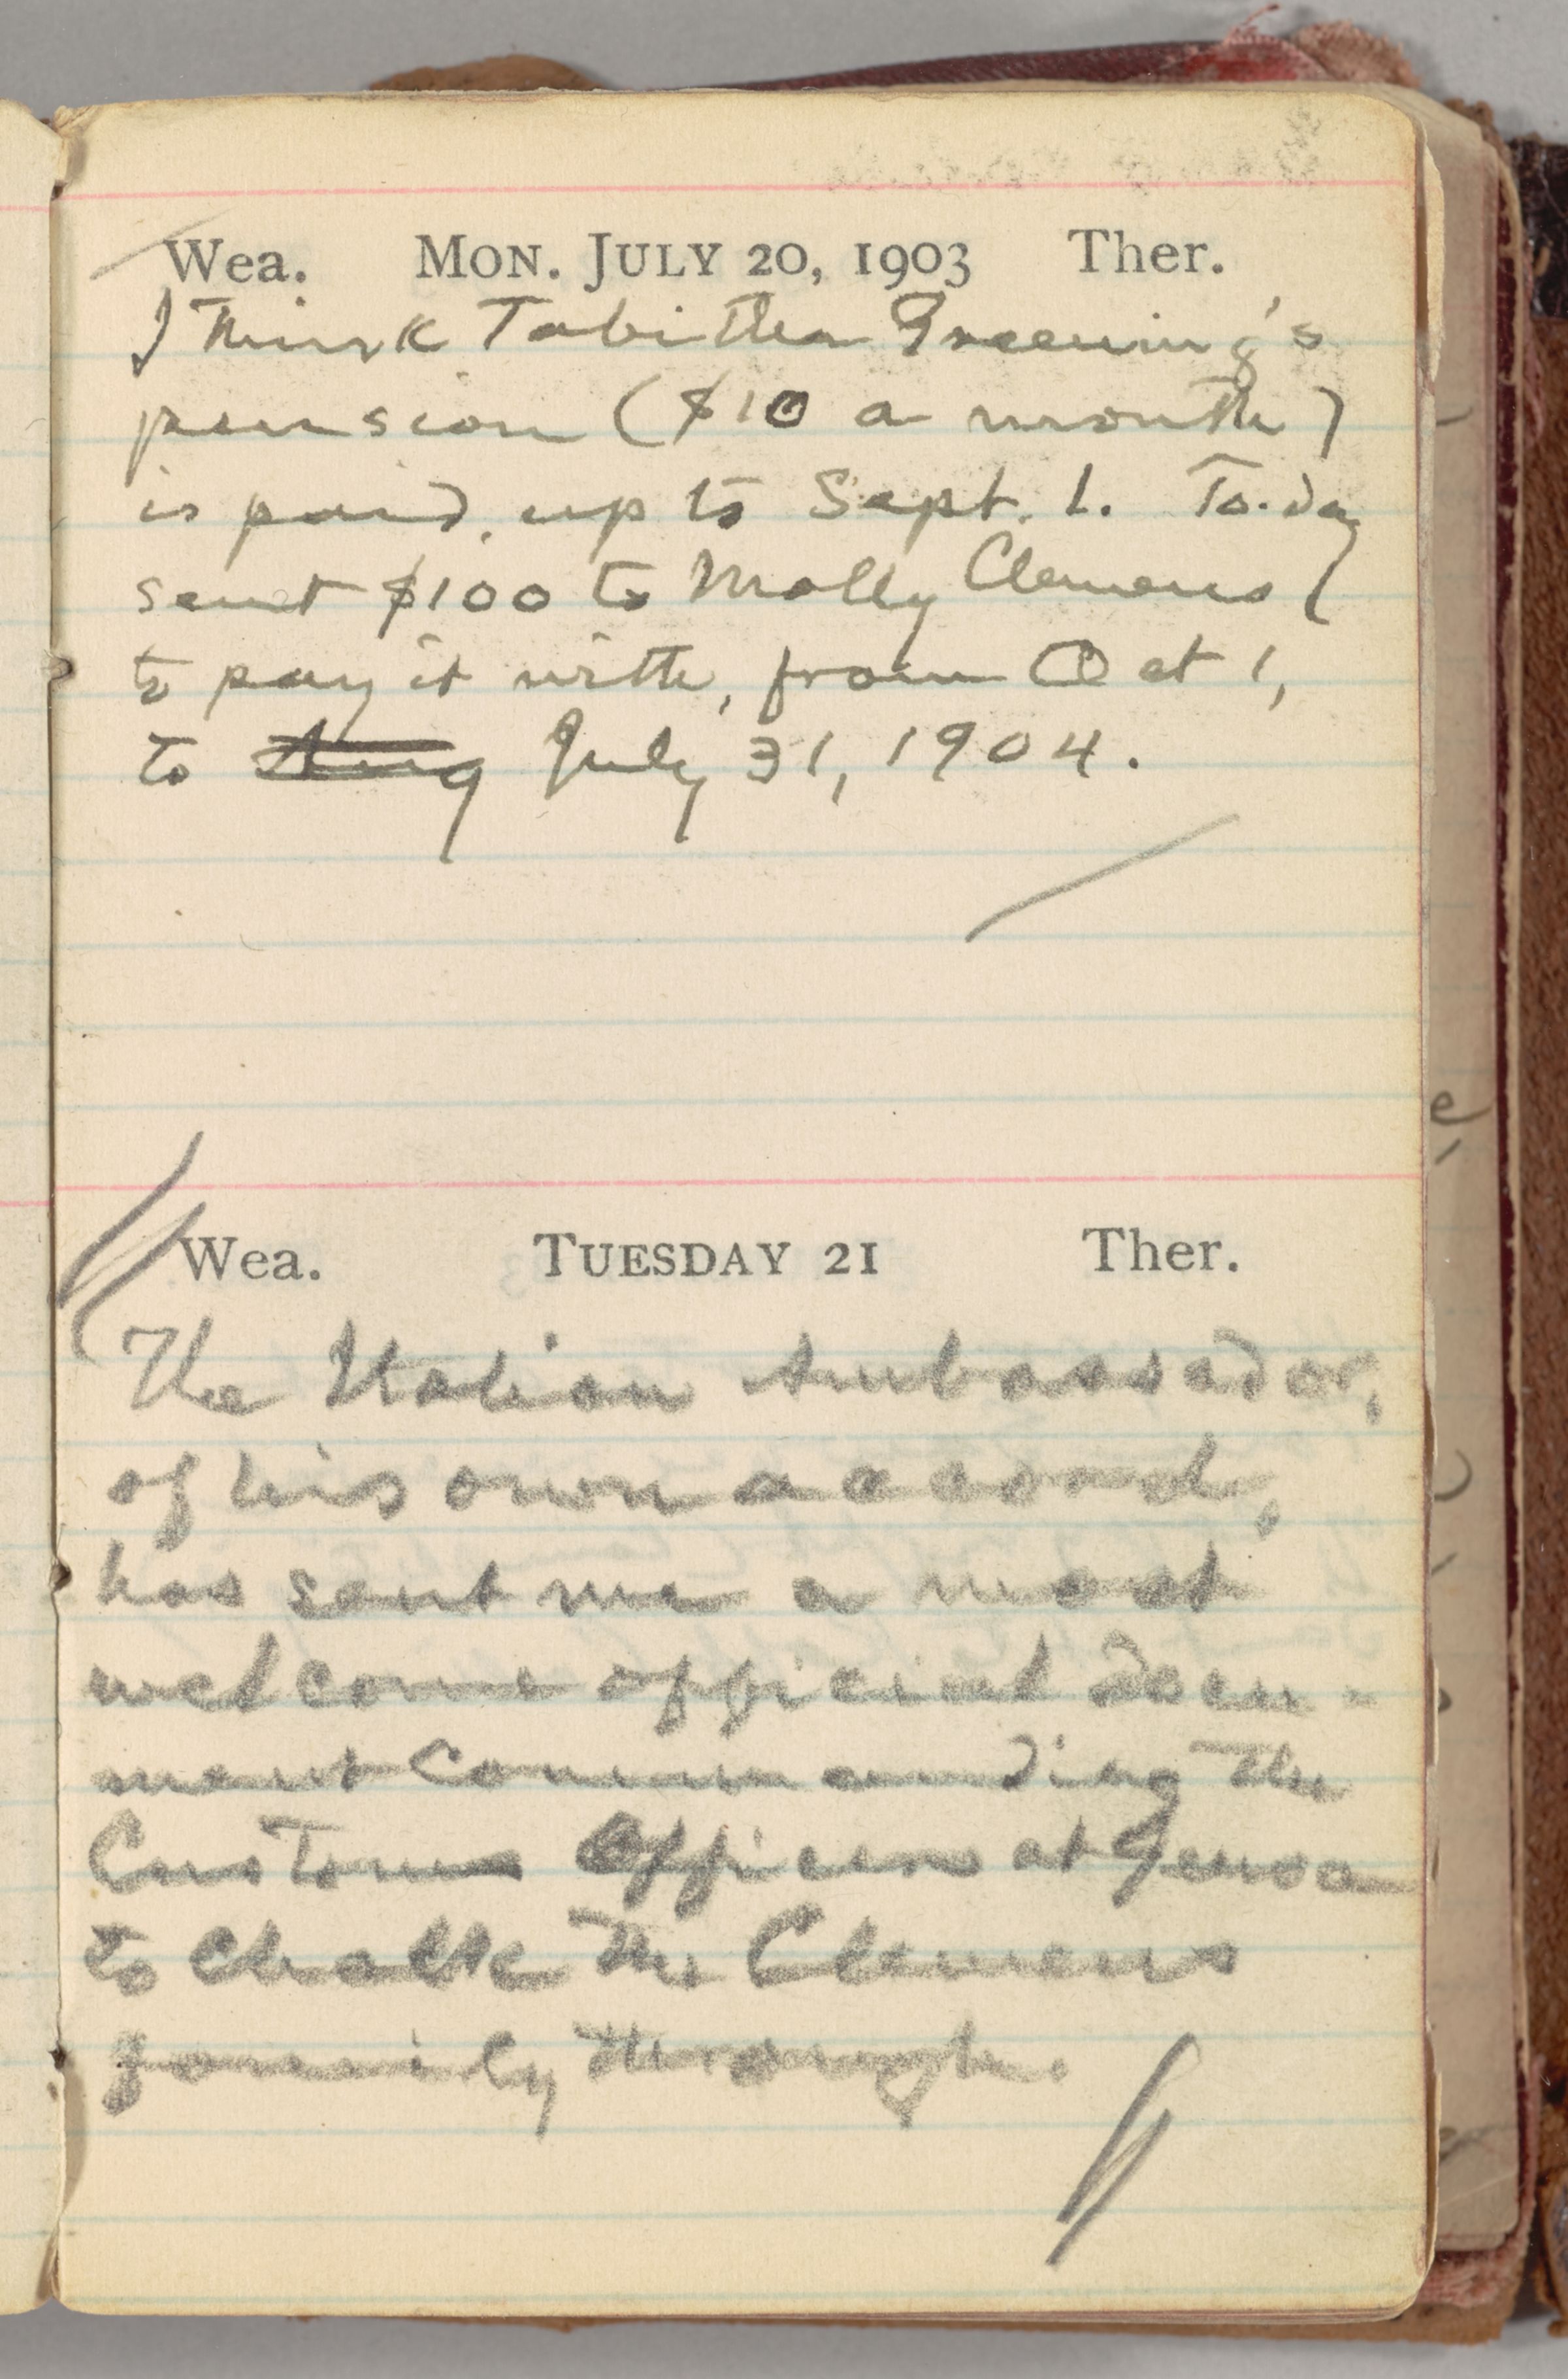 Wea. MON. JULY 20, 1903 Ther.
I think Tabitha Greening's
pension ($10 a month)
is paid, up to Sept. 1. To-day
sent $100 to Molly Clemens
to pay it with, from Oct 1,
to Aug July 31, 1904.
Wea. TUESDAY 21 Ther.
The Italian Ambassador,
of his own accord,
has sent me a most
welcome official docu-
ment commanding the
Customs Officers at Genoa
to chalk the Clemens
family through.